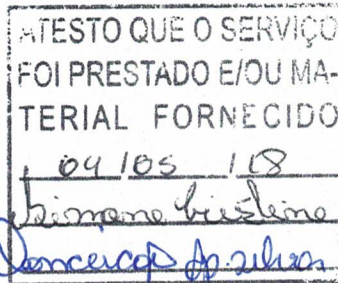 ATESTO QUE O SERVIÇO
FOI PRESTADO E/OU MA-
TERIAL FORNECIDO
04/05/18
Simone Cristina